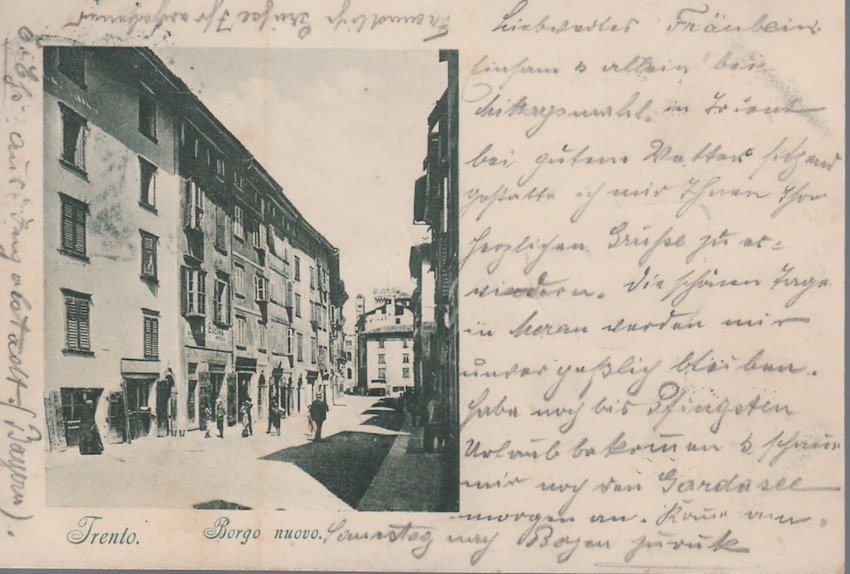 Liebwertes Fräulein
Einsam & allein bei
Mittagsmahl in Trient
bei gutem Wetter sitzend
gestatte ich mir Ihnen Ihre
herzlichen Grüße zu er-
wiedern. Die schönen Tage
in Meran werden mir
unvergeßlich bleiben.
Habe noch bis Pfingsten
Urlaub bekommen & schaue
mir noch den Gardasee
morgen an. Komme am
Samstag nach Bozen zurück
Trento. Borgo nuovo.
Freundliche Grüße
(Bayern).